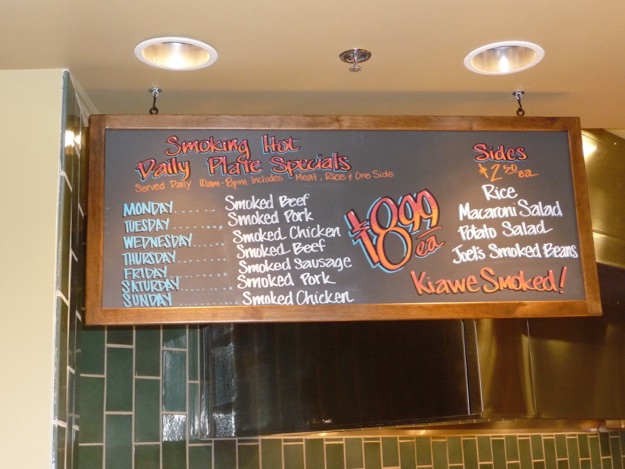 Smoking Hot
Daily Plate Specials
Served Daily 10am-8pm. Includes 1 Meat, Rice & One Side
MONDAY........ Smoked Beef
TUESDAY........ Smoked Pork
WEDNESDAY........ Smoked Chicken
THURSDAY........ Smoked Beef
FRIDAY........ Smoked Sausage
SATURDAY........ Smoked Pork
SUNDAY........ Smoked Chicken
$8.99 ea
Sides
$2.50 ea
Rice
Macaroni Salad
Potato Salad
Joel's Smoked Beans
Kiawe Smoked!